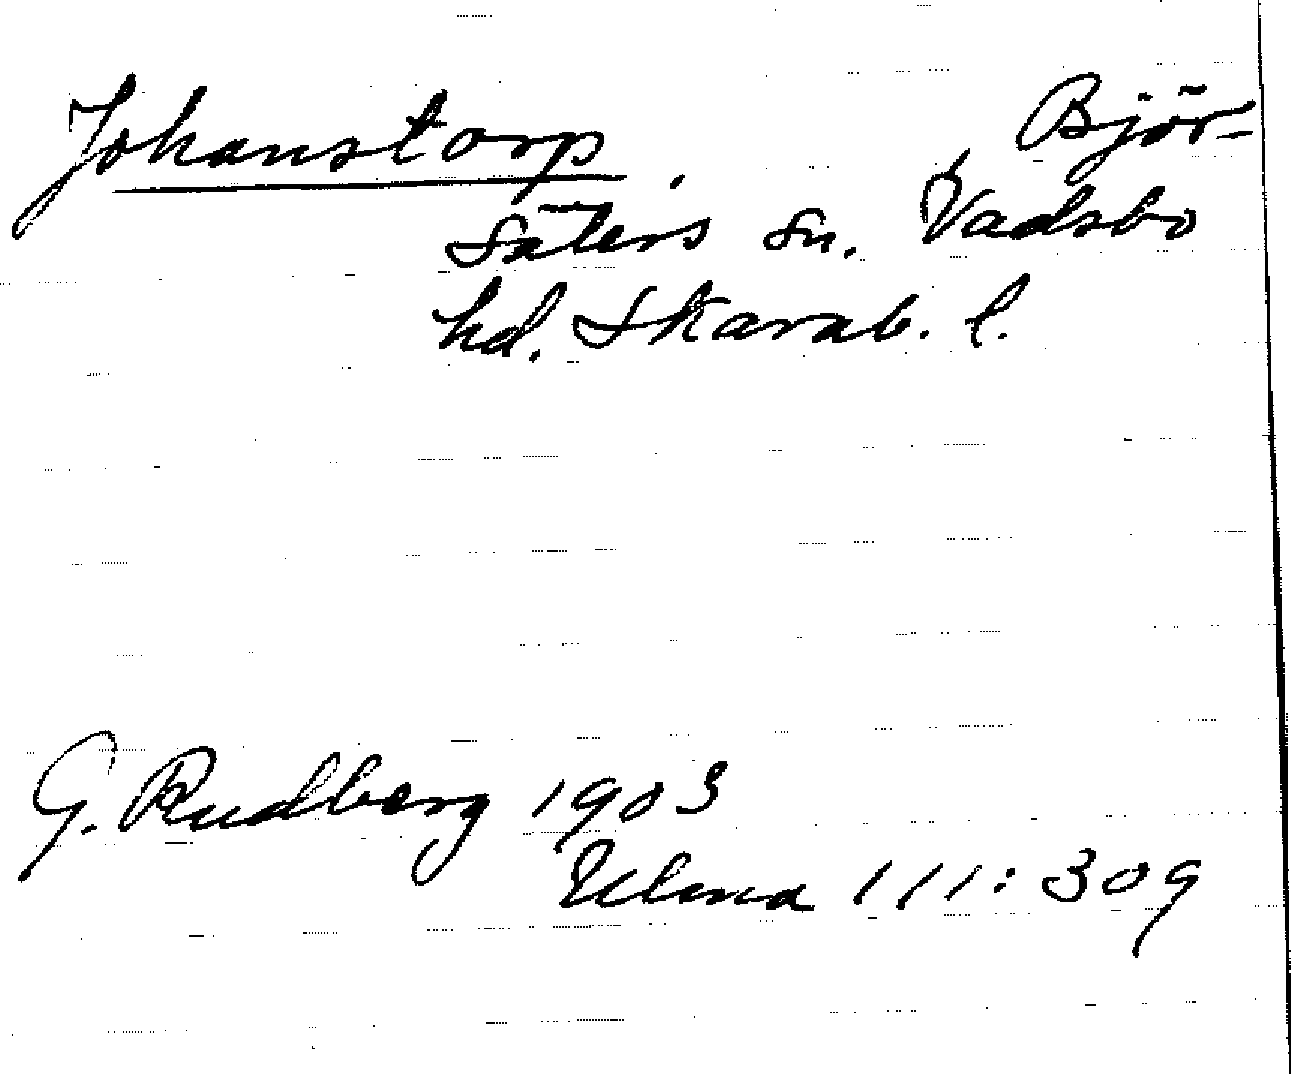 Johanstorp. Björ-
säters sn. Vadsbo
hd. Skarab. l.
G. Rudberg 1903
Ulma 111:309